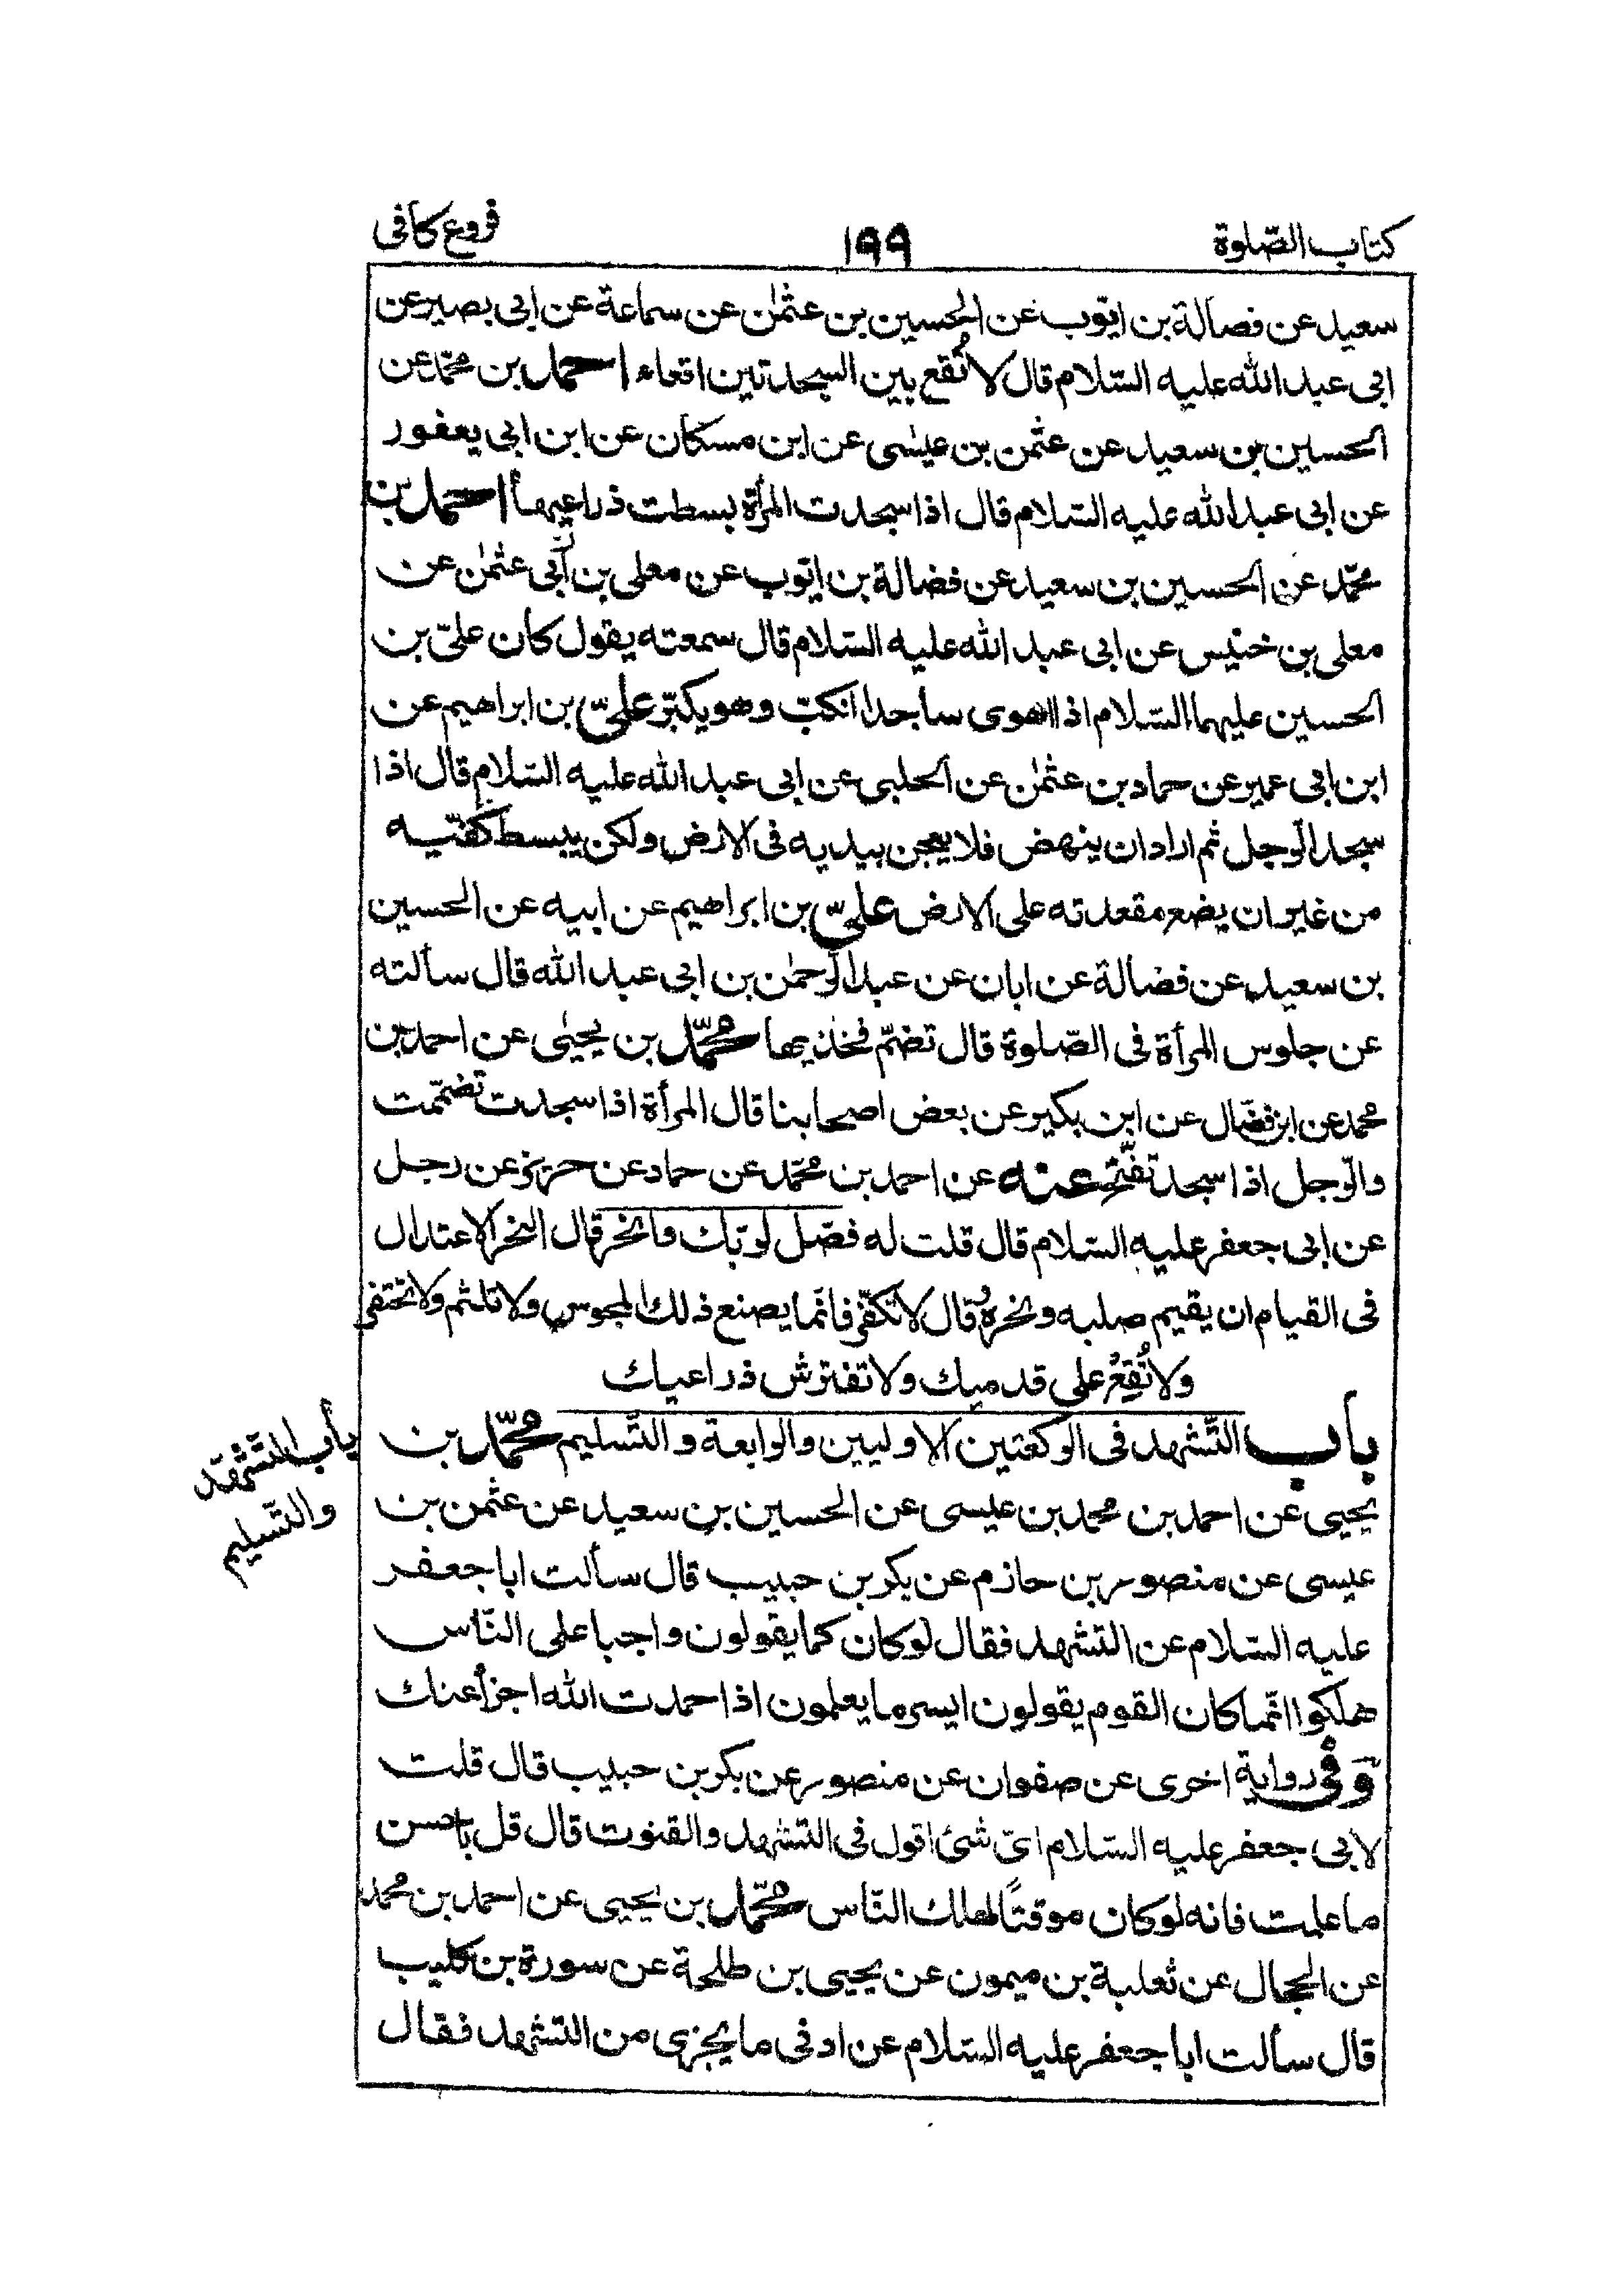 كتاب الصّلوة
١٩٩
فروع كافى
سعيد عن فضالة بن ايّوب عن الحسين بن عثمٰن عن سماعة عن ابى بصير عن
ابى عبد الله عليه السّلام قال لا تُقع بين السجدتين اقعاء احمد بن محمّد عن
الحسين بن سعيد عن عثمٰن بن عيسٰى عن ابن مسكان عن ابن ابى يعفور
عن ابى عبد الله عليه السّلام قال اذا سجدت المرأة بسطت ذراعيها احمد بن
محمّد عن الحسين بن سعيد عن فضالة بن ايّوب عن معلى بن أبى عثمٰن عن
معلى بن خنيس عن ابى عبد الله عليه السّلام قال سمعته يقول كان علىّ بن
الحسين عليهما السّلام اذا اهوى ساجدا انكبّ وهو يكبّر علىّ بن ابراهيم عن
ابن ابى عمير عن حماد بن عثمٰن عن الحلبى عن ابى عبد الله عليه السّلام قال اذا
سجد الرّجل ثم اراد ان ينهض فلا يعجن بيديه فى الارض ولكن يبسط كفّيه
من غير ان يضع مقعدته على الارض علىّ بن ابراهيم عن ابيه عن الحسين
بن سعيد عن فضالة عن ابان عن عبد الرّحمٰن بن ابى عبد الله قال سألته
عن جلوس المرأة فى الصّلوة قال تضمّ فخذيها محمّد بن يحيٰى عن احمد بن
محمد عن ابن فضّال عن ابن بكير عن بعض اصحابنا قال المرأة اذا سجدت تضمّمت
والرّجل اذا سجد تفتّح عنه عن احمد بن محمّد عن حماد عن حريز عن رجل
عن ابى جعفر عليه السّلام قال قلت له فصّل لربّك وانحر قال النحر الاعتدال
فى القيام ان يقيم صلبه ونحره قال لا تكفّر فانّما يصنع ذلك المجوس ولا تلثم ولا تحتفى
ولا تُقعِ على قدميك ولا تفترش ذراعيك
باب التّشهد فى الركعتين الاوليين والرابعة والتّسليم محمّد بن
يحيى عن احمد بن محمد بن عيسى عن الحسين بن سعيد عن عثمن بن
عيسى عن منصور بن حازم عن بكر بن حبيب قال سألت ابا جعفر
عليه السّلام عن التشهد فقال لو كان كما يقولون واجبا على النّاس
هلكوا انّما كان القوم يقولون ايسر ما يعلمون اذا حمدت الله اجزأ عنك
وفى رواية اخرى عن صفوان عن منصور عن بكر بن حبيب قال قلت
لابى جعفر عليه السّلام اىّ شئ اقول فى التشهد والقنوت قال قل باحسن
ما علمت فانه لو كان موقتاً لهلك النّاس محمّد بن يحيى عن احمد بن محمد
عن الحجال عن ثعلبة بن ميمون عن يحيى بن طلحة عن سورة بن كليب
قال سألت ابا جعفر عليه السّلام عن ادنى ما يجزى من التشهد فقال
باب التشهّد
والتّسليم